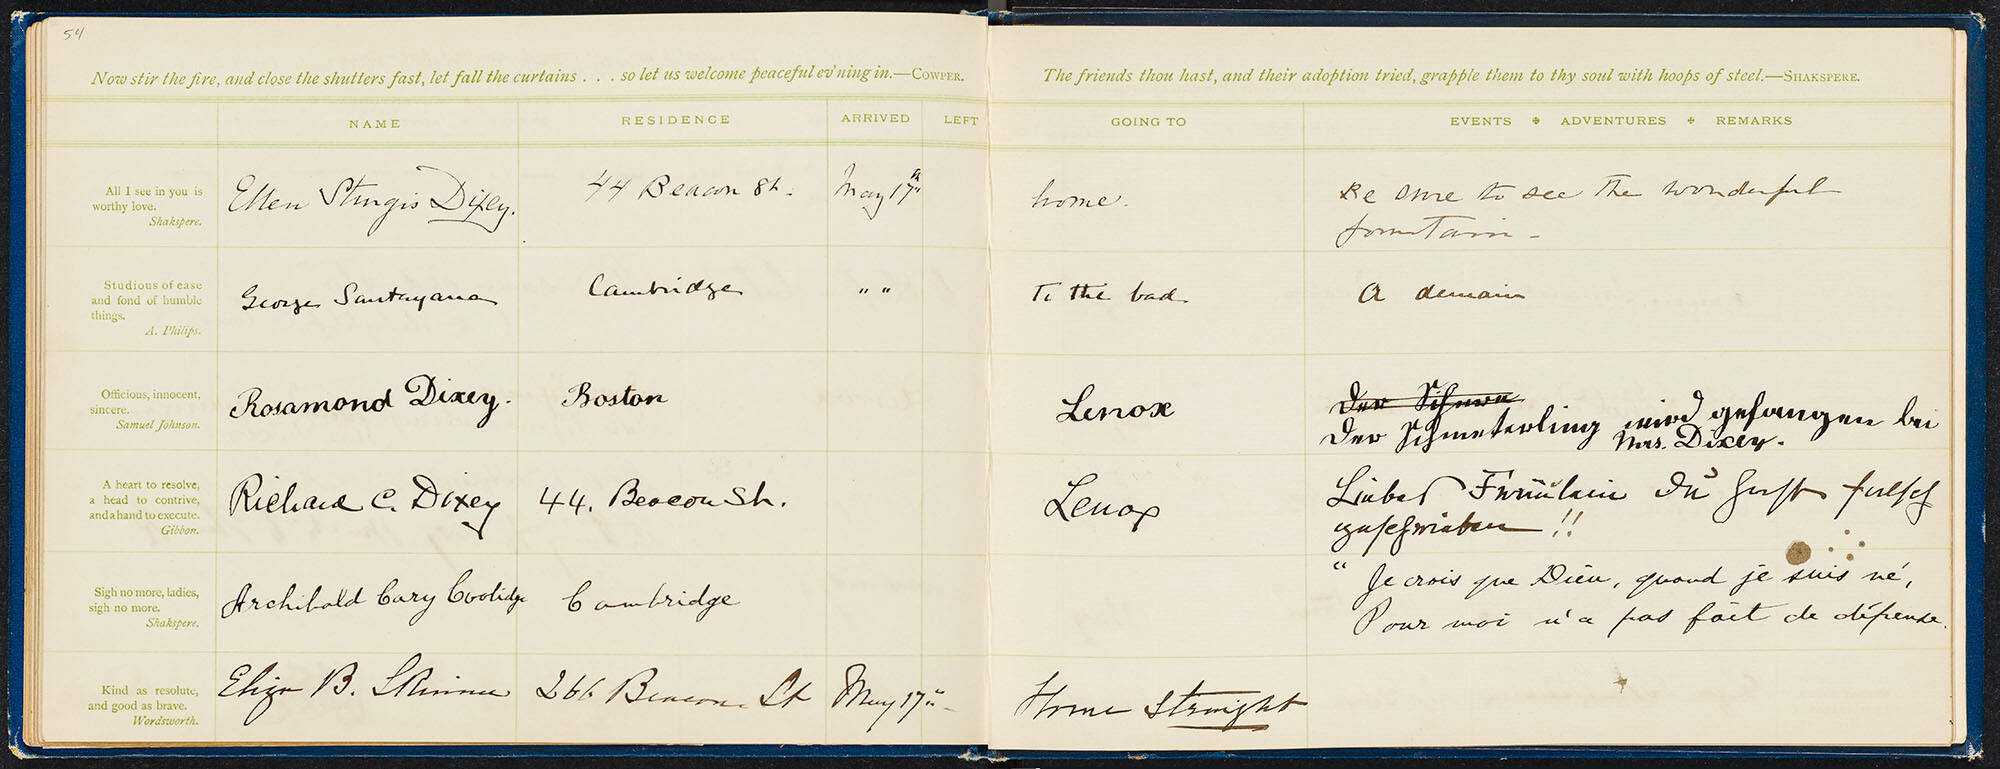 54
Now stir the fire, and close the shutters fast, let fall the curtains . . . so let us welcome peaceful ev'ning in.—COWPER.
NAME RESIDENCE ARRIVED LEFT
All I see in you is
worthy love.
Shakspere.
Ellen Sturgis Dixey. 44 Beacon St. May 17th
Studious of ease
and fond of humble
things.
A. Philips.
George Santayana Cambridge " "
Officious, innocent,
sincere.
Samuel Johnson.
Rosamond Dixey. Boston
A heart to resolve,
a head to contrive,
and a hand to execute.
Gibbon.
Richard C. Dixey 44. Beacon St.
Sigh no more, ladies,
sigh no more.
Shakspere.
Archibald Cary Coolidge Cambridge
Kind as resolute,
and good as brave.
Wordsworth.
Eliza B. Skinner 266 Beacon St May 17"
The friends thou hast, and their adoption tried, grapple them to thy soul with hoops of steel.—SHAKSPERE.
GOING TO EVENTS ✤ ADVENTURES ✤ REMARKS
home. Be sure to see the wonderful
fountain –
To the bad. A demain
Lenox Der Schme
Der Schmeterling wird gefangen bei
Mrs. Dixey.
Lenox Liebes Fräulein Du hast falsch
geschrieben !!
" Je crois que Dieu, quand je suis né,
Pour moi n'a pas fait de dépense.
Home Straight